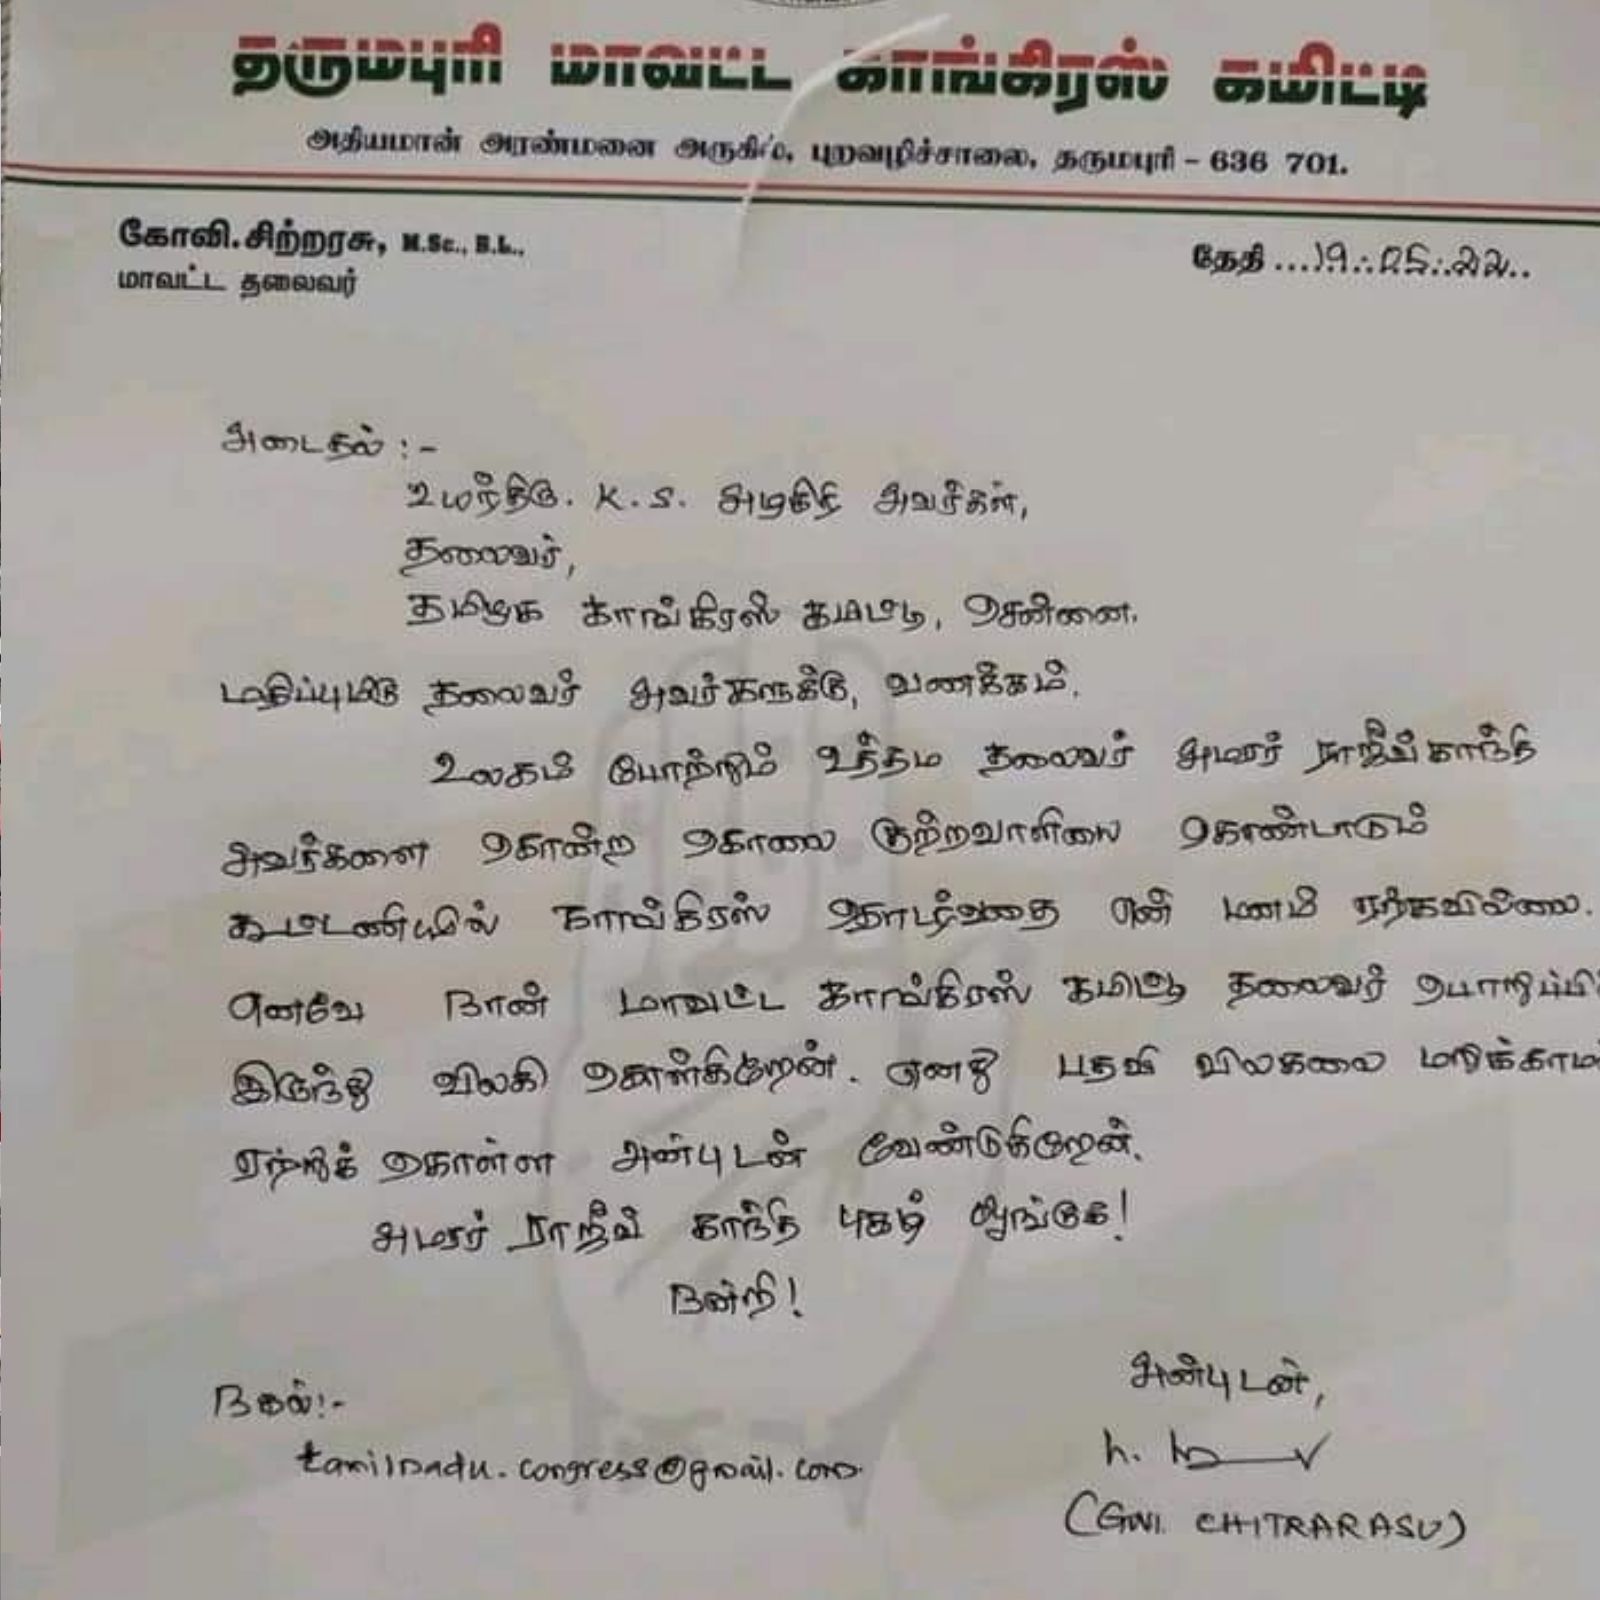 தருமபுரி மாவட்ட காங்கிரஸ் கமிட்டி
அதியமான் அரண்மனை அருகில், புறவழிச்சாலை, தருமபுரி - 636 701.
கோவி.சிற்றரசு, M.Sc., B.L.,
மாவட்ட தலைவர்
தேதி ...19.05.22..
அடைதல் :-
உயர்திரு. K.S. அழகிரி அவர்கள்,
தலைவர்,
தமிழக காங்கிரஸ் கமிட்டி, சென்னை.
மதிப்புமிகு தலைவர் அவர்களுக்கு, வணக்கம்.
உலகம் போற்றும் உத்தம தலைவர் அமரர் ராஜீவ்காந்தி
அவர்களை கொன்ற கொலை குற்றவாளியை கொண்டாடும்
கூட்டணியில் காங்கிரஸ் தொடர்வதை என் மனம் ஏற்கவில்லை.
எனவே நான் மாவட்ட காங்கிரஸ் கமிட்டி தலைவர்
இருந்து விலகி கொள்கிறேன். எனது பதவி விலகலை
ஏற்றுக் கொள்ள அன்புடன் வேண்டுகிறேன்.
அமரர் ராஜீவ் காந்தி புகழ் ஓங்குக!
நன்றி!
அன்புடன்,
நகல்:-
tamilnadu.congress@gmail.com.
(GOVI. CHITRARASU)